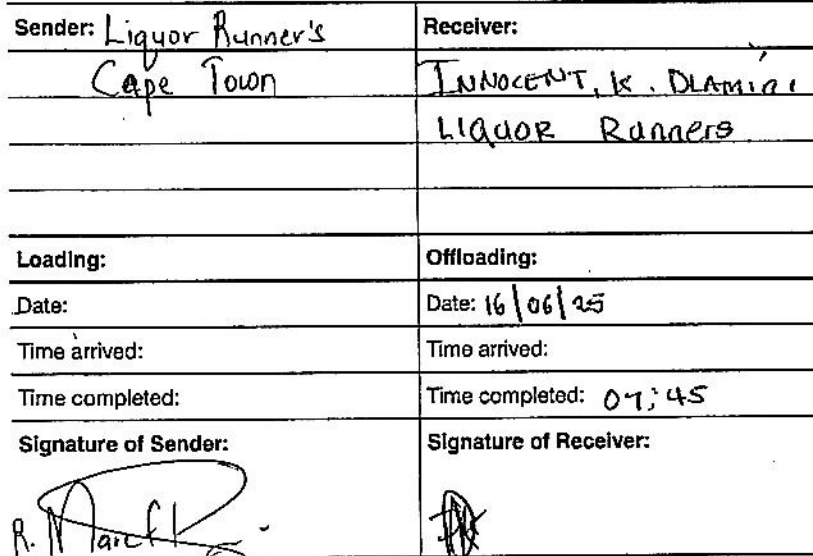 Sender: Liquor Runner's
Cape Town
Receiver:
INNOCENT. K. DLAMINI
LIQUOR Runners
Loading:
Offloading:
Date:
Date: 16/06/25
Time arrived:
Time arrived:
Time completed:
Time completed: 07:45
Signature of Sender:
Signature of Receiver:
R.